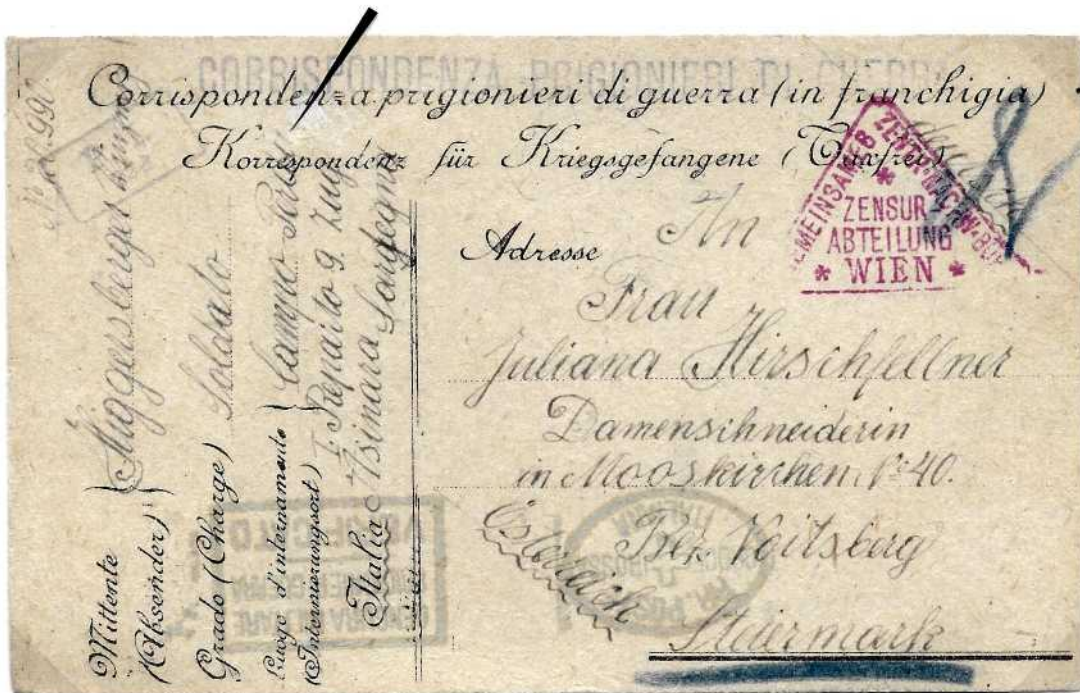 CORRISPONDENZA PRIGIONIERI DI GUERRA
Corrispondenza prigionieri di guerra (in franchigia)
Korrespondenz für Kriegsgefangene (Taxfrei)
GEMEINSAMES ZENTR. NACHW.
ZENSUR
ABTEILUNG
* WIEN *
Adresse
An
Frau
Juliana Hirschfellner
Damenschneiderin
in Mooskirchen Nº 40.
Bez. Voitsberg
Österreich
Steiermark
Mittente
(Absender)
Grado (Charge) Soldato
Luogo d'internamento
(Internierungsort)
Campo
I. Reparto 9. Zug
Italia Asinara Sardegna